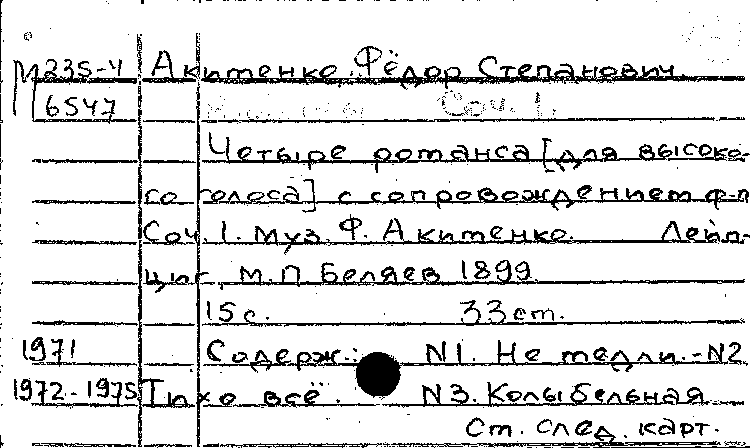 М 235-4 Акименко, Фёдор Степанович.
6547 Соч. 1.
Четыре романса [для высоко-
го голоса] с сопровождением ф-п
Соч. 1. Муз. Ф. Акименко. Лейп-
циг, М.П. Беляев 1899.
15 с. 33 см.
1971 Содерж.: N1. Не медли. - N2
1972-1975 Тихо всё. N3. Колыбельная
См. след. карт.